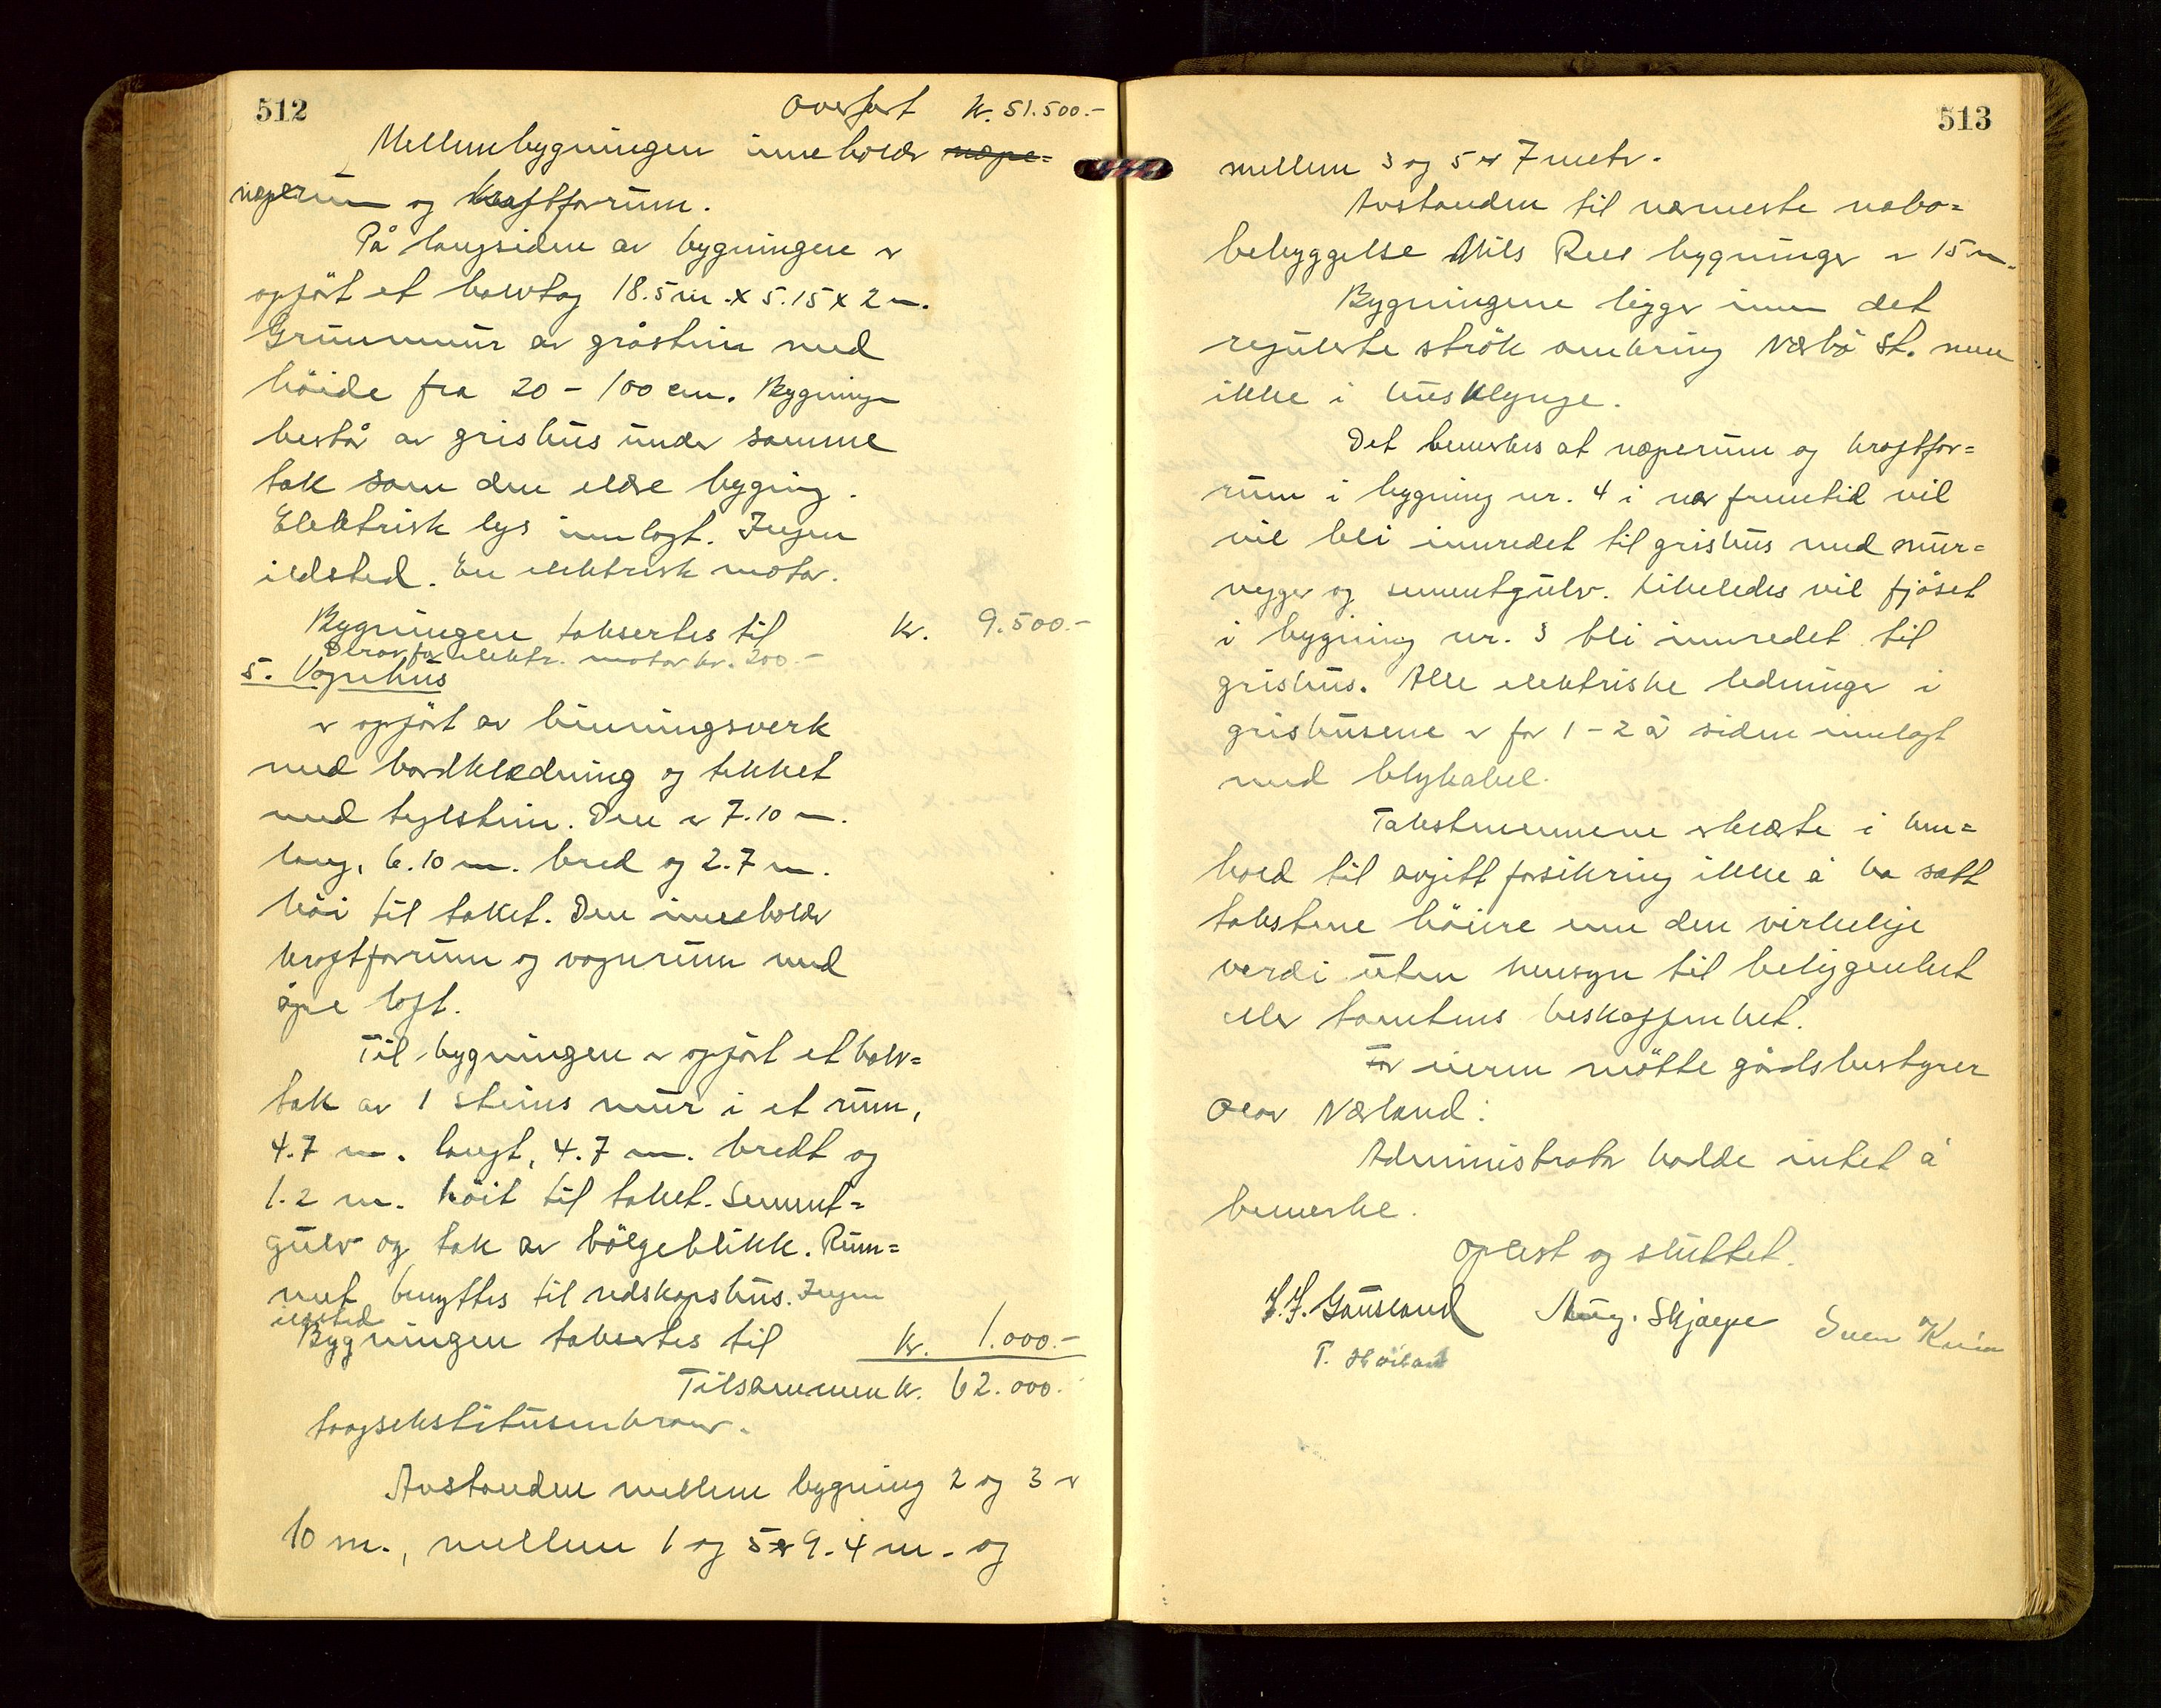 512
Overført kr. 51.500.-
Mellembygningen inneholder nepe=
neperum og kraftforrum.
På langsiden av bygningen er
opført et halvtag 18.5 m. x 5.15 x 2 m.
Grunnmur av gråstein med
höide fra 20 - 100 cm. Bygningen
består av grishus under samme
tak som den eldre bygning.
Elektrisk lys innlagt. Ingen
ildsted. En elektrisk motor.
Bygningen takseres til kr. 9.500.-
Derav for elektr. motor kr. 200.-
5. Vognhus
er opført av binningsverk
med bordklædning og tekket
med teglstein. Den er 7.10 m.
lang, 6.10 m. bred og 2.7 m.
höi til taket. Den inneholder
kraftforrum og vognrum med
åpne loft.
Til bygningen er opført et halv=
tak av 1 steins mur i et rum,
4.7 m. langt, 4.7 m. bredt og
1.2 m. höit til taket. Sement=
gulv og tak av bölgeblikk. Rum=
met benyttes til redskapshus. Ingen
ildsted
Bygningen takseres til kr. 1.000.-
Tilsammen kr. 62.000.
toogsekstitusenkroner.
Avstanden mellem bygning 2 og 3 er
10 m., mellem 1 og 5 er 9.4 m. og
513
mellem 3 og 5 er 7 meter.
Avstanden til nærmeste nabo=
bebyggelse Nils Rees bygninger er 15 m.
Bygningene ligger innen det
regulerte strök omkring Nærbö St. men
ikke i husklynge.
Det bemerkes at neperum og kraftfor=
rum i bygning nr. 4 i nær fremtid vil
vil bli innredet til grishus med mur=
vegger og sementgulv. Likeledes vil fjöset
i bygning nr. 3 bli innredet til
grishus. Alle elektriske ledninger i
grishusene er for 1 - 2 år siden innlagt
med blykabel.
Takstmennene erklærte i hen=
hold til avgitt forsikring ikke å ha satt
takstene höiere enn den virkelige
verdi uten hensyn til beliggenhet
eller tomtens beskaffenhet.
For eieren mötte gårdsbestyrer
Olav Nærland:
Administrator hadde intet å
bemerke.
Oplest og sluttet.
J. J. Gausland Aug. Skjærpe Sven Kvia
T. Höiland